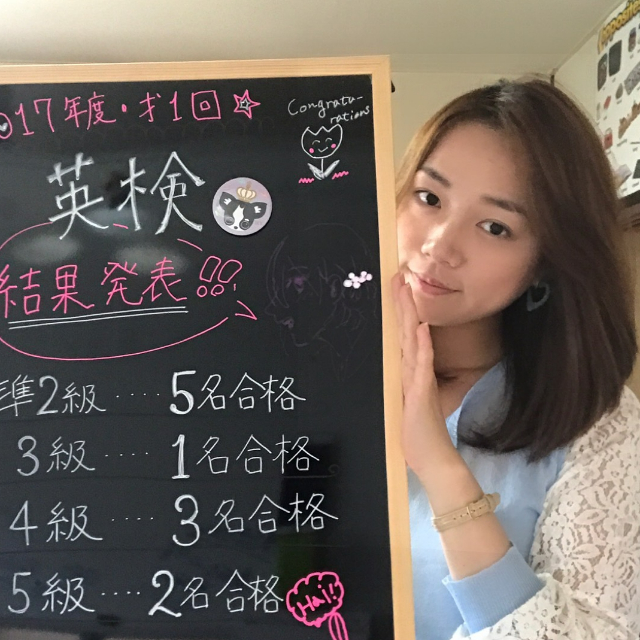 017年度・才1回
Congratu-
rations
英検
結果発表!!
準2級‥‥5名合格
3級‥‥1名合格
4級‥‥3名合格
5級‥‥2名合格
Hai!!